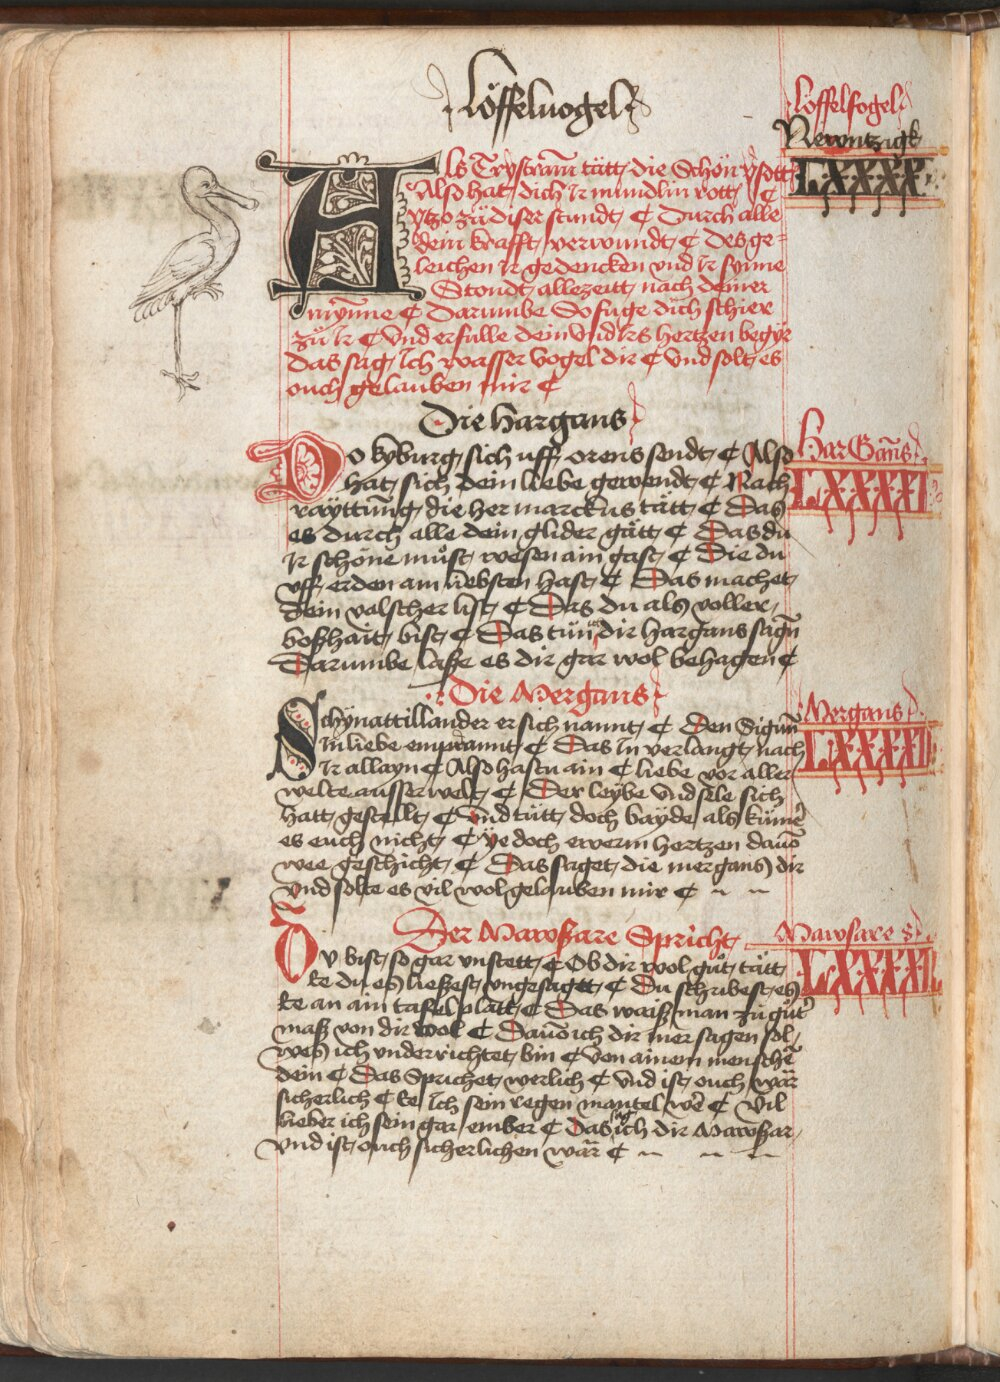 Löffeluogel
Löffelfogel
Newntzigk
LXXXX
Als Trystram tätt die Schön ysott
Also hat dich Ir mündlin rott ¢
ytzo zu diser stundt ¢ Durch alle
dein krafft verwundt ¢ Desge-
leichen Ir gedencken vnd Ir synne
Stondt allezeitt nach deiner
mynne ¢ Darumbe So fuge dich schier
zu Ir ¢ Vnd erfulle dein vnd Irs hertzen begyr
das sag Ich wasser vogel dir ¢ Vnd solt es
ouch gelauben mir ¢
Die Hargans
Har Gans
LXXXXI
Do kyburg sich uff orens sendt ¢ Also
hat sich dein liebe gewendt ¢ Nach
rayttung die her marckus tätt ¢ Das
es durch alle dein glider gätt ¢ Das du
Ir schöne must wesen ain gast ¢ Die du
vff erden am liebsten hast ¢ Das machet
dein valscher list ¢ Das du als voller
boßhait bist ¢ Das tun ich dir hargans sagn
Darumbe laße es dir gar wol behagen ¢
Die Mergans
Mergans
LXXXXII
Schynattillander er sich nannt ¢ Den Sigun
In liebe emprannt ¢ Das In verlangt nach
Ir allayn ¢ Also hastu ain ¢ liebe vor aller
welte ausserwelt ¢ Der leybe vnd sele sich
hatt gestellt ¢ Vnd tutt doch bayde als kume
es euch nicht ¢ ye doch ewerm hertzen dauo
wee geschicht ¢ Das saget die mergans dir
Vnd solte es vil wol gelauben mir ¢
Der Mawßare Spricht
Mawsare
LXXXXIII
Du bist so gar vnstett ¢ Ob dir wol gut tätt
ee du es ließest vngesagtt ¢ Du schribest es
ee an ain tafel platt ¢ Das waiß man zu guter
maß von dir wol ¢ Dauo ich dir mer sagen sol
wes ich vnderrichtet bin ¢ Von ainem mensche
dein ¢ Das Sprichet werlich ¢ Vnd ist ouch wär
sicherlich ¢ ee Ich sein regen mantel we ¢ Vil
lieber ich sein gar ember ¢ Das sag ich dir Mawßar
Vnd ist ouch sicherlichen wär ¢